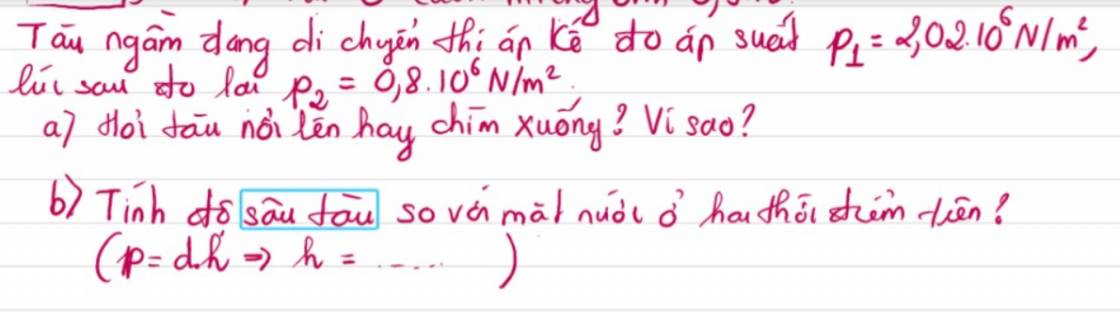 Tàu ngầm đang di chuyển thì áp kế đo áp suất p₁ = 2,02.10⁶ N/m²,
lúc sau đo lại p₂ = 0,8.10⁶ N/m².
a) Hỏi tàu nổi lên hay chìm xuống? Vì sao?
b) Tính độ sâu tàu so với mặt nước ở hai thời điểm trên?
(p = d.h => h = ...... )